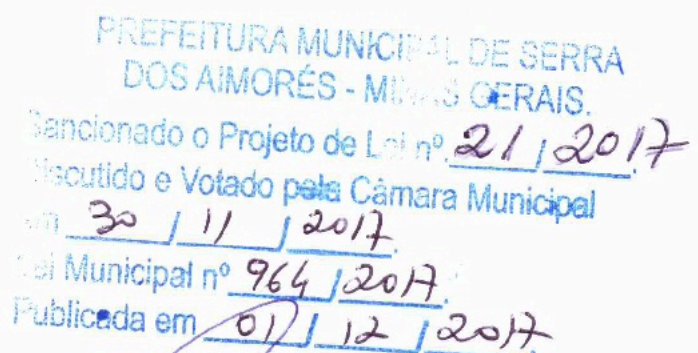 PREFEITURA MUNICIPAL DE SERRA
DOS AIMORÉS - MINAS GERAIS.
Sancionado o Projeto de Lei nº 21 / 2017
Discutido e Votado pela Câmara Municipal
em 30 / 11 / 2017.
Lei Municipal nº 964 / 2017.
Publicada em 01 / 12 / 2017